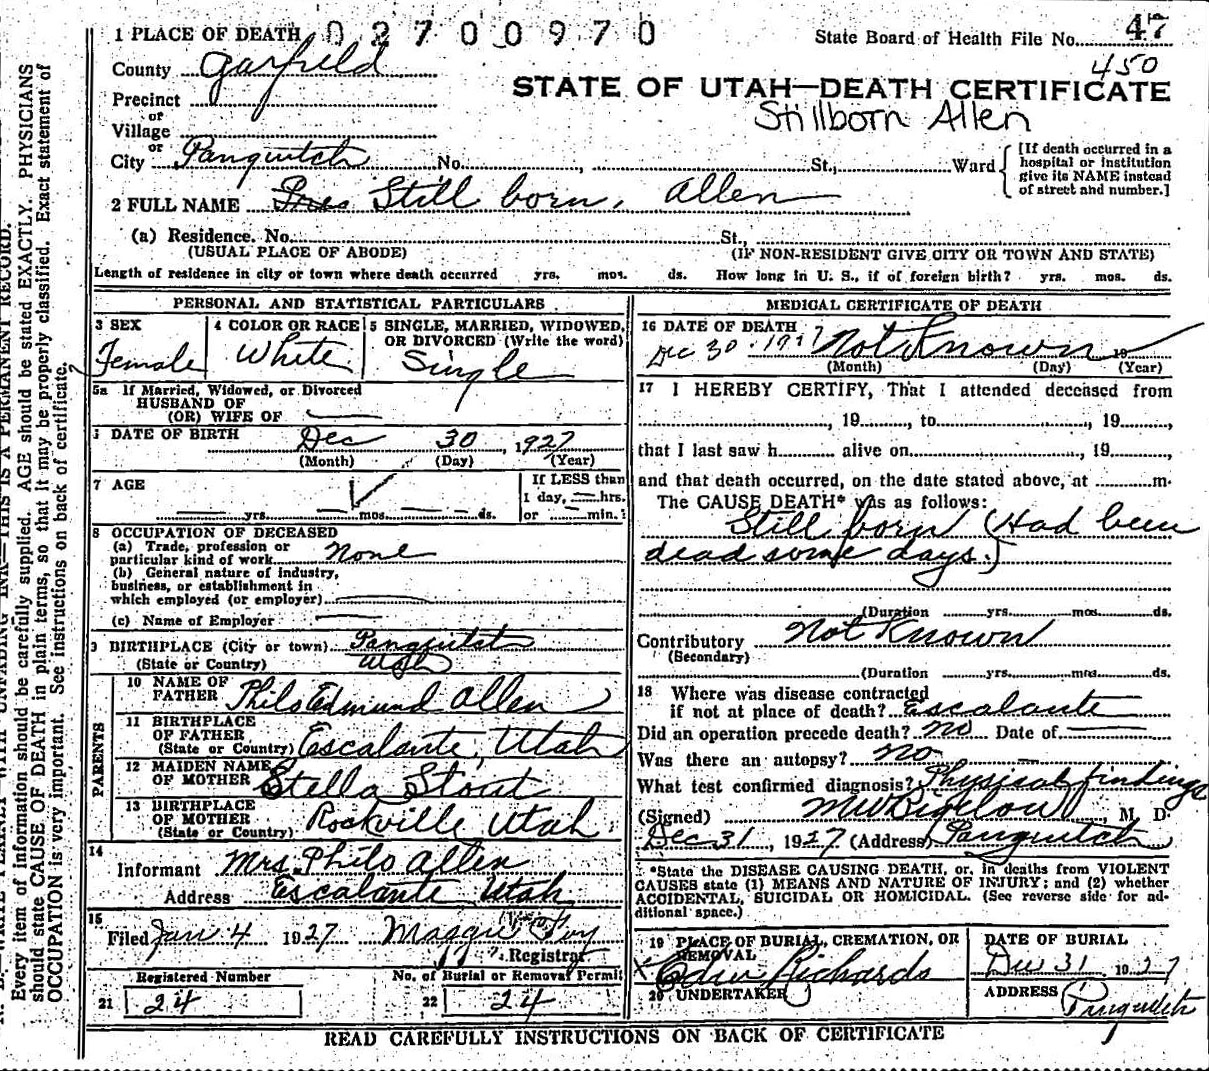 1 PLACE OF DEATH 0 2 7 0 0 9 7 0
State Board of Health File No. 47
450
County Garfield
STATE OF UTAH—DEATH CERTIFICATE
Stillborn Allen
Precinct
or
Village
or
City Panguitch No. , St., Ward
[If death occurred in a hospital or institution give its NAME instead of street and number.]
2 FULL NAME Still born, Allen
(a) Residence. No. St.,
(USUAL PLACE OF ABODE) (IF NON-RESIDENT GIVE CITY OR TOWN AND STATE)
Length of residence in city or town where death occurred yrs. mos. ds. How long in U. S., if of foreign birth? yrs. mos. ds.
PERSONAL AND STATISTICAL PARTICULARS
3 SEX
Female
4 COLOR OR RACE
White
5 SINGLE, MARRIED, WIDOWED,
OR DIVORCED (Write the word)
Single
5a If Married, Widowed, or Divorced
HUSBAND OF
(OR) WIFE OF
DATE OF BIRTH Dec 30, 1927
(Month) (Day) (Year)
7 AGE
yrs. mos. ds.
If LESS than
1 day, hrs.
or min.
8 OCCUPATION OF DECEASED
(a) Trade, profession or
particular kind of work None
(b) General nature of industry,
business, or establishment in
which employed (or employer)
(c) Name of Employer
9 BIRTHPLACE (City or town) Panguitch
(State or Country) Utah
PARENTS
10 NAME OF
FATHER Philo Edmund Allen
11 BIRTHPLACE
OF FATHER
(State or Country) Escalante, Utah
12 MAIDEN NAME
OF MOTHER Stella Stout
13 BIRTHPLACE
OF MOTHER
(State or Country) Rockville Utah
14
Informant Mrs. Philo Allen
Address Escalante Utah
15
Filed Jan 4 1927
Registrar
Registered Number
21 24
No. of Burial or Removal Permit
22 24
MEDICAL CERTIFICATE OF DEATH
16 DATE OF DEATH
Dec 30 - 1927 Not Known 19
(Month) (Day) (Year)
17 I HEREBY CERTIFY, That I attended deceased from
, 19 , to , 19 ,
that I last saw h alive on , 19 ,
and that death occurred, on the date stated above, at m.
The CAUSE DEATH* was as follows:
Still born (Had been
dead some days.)
(Duration yrs. mos. ds.
Contributory Not Known
(Secondary)
(Duration yrs. mos. ds.
18 Where was disease contracted
if not at place of death? Escalante
Did an operation precede death? No Date of
Was there an autopsy? No
What test confirmed diagnosis? Physical findings
(Signed) M W Bigelow, M. D.
Dec 31, 1927 (Address) Panguitch
*State the DISEASE CAUSING DEATH, or, in deaths from VIOLENT
CAUSES state (1) MEANS AND NATURE OF INJURY; and (2) whether
ACCIDENTAL, SUICIDAL OR HOMICIDAL. (See reverse side for ad-
ditional space.)
19 PLACE OF BURIAL, CREMATION, OR
REMOVAL
DATE OF BURIAL
Dec 31 1927
Richards
20 UNDERTAKER
ADDRESS
Panguitch
READ CAREFULLY INSTRUCTIONS ON BACK OF CERTIFICATE
Every item of information should be carefully supplied. AGE should be stated EXACTLY. PHYSICIANS
should state CAUSE OF DEATH in plain terms, so that it may be properly classified. Exact statement of
OCCUPATION is very important. See instructions on back of certificate.